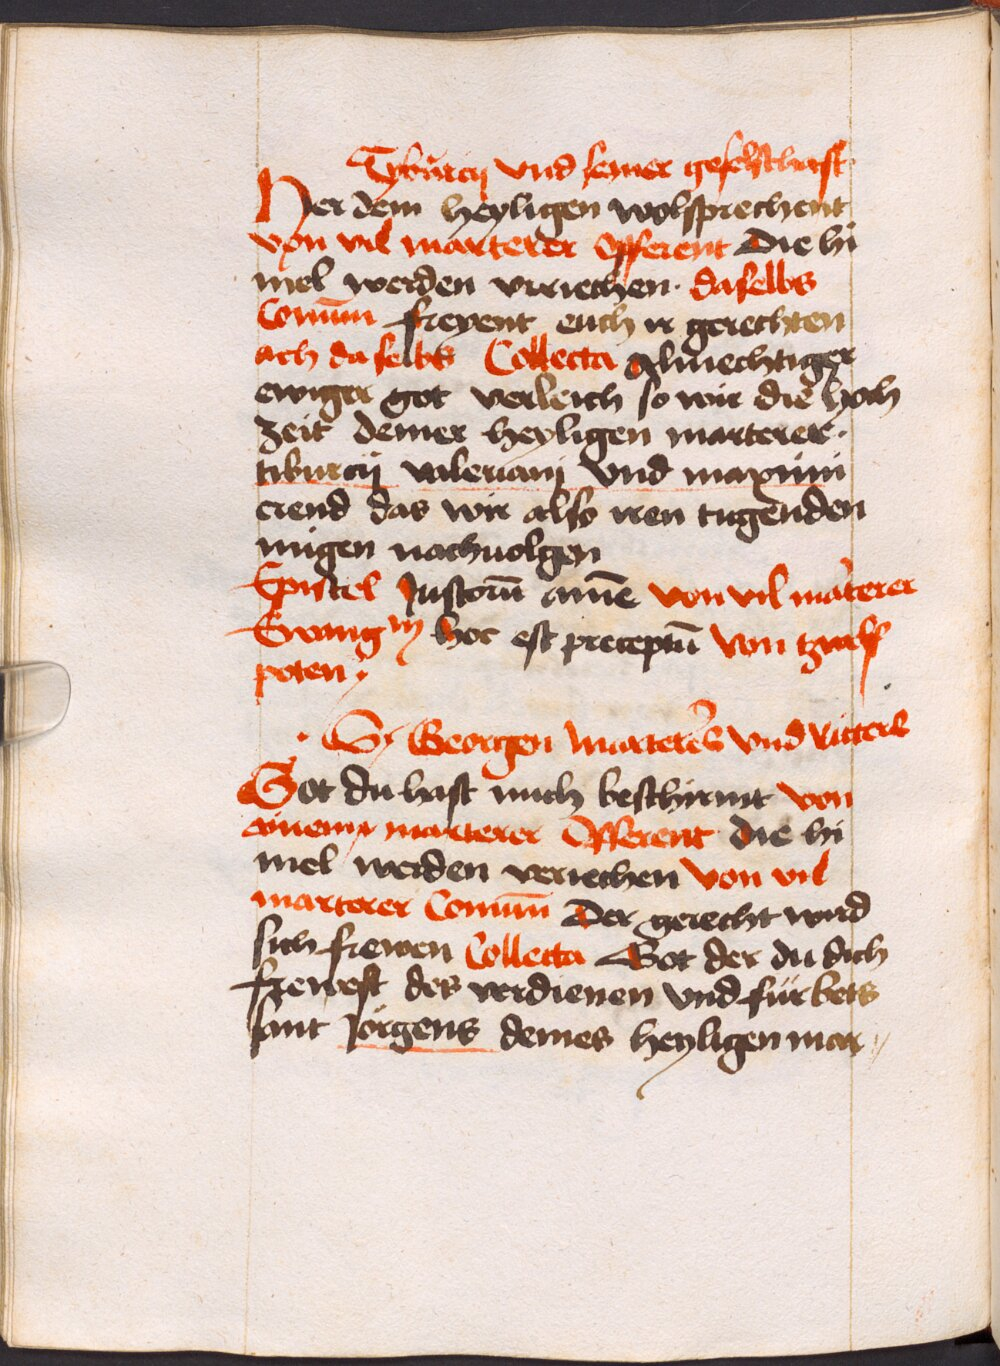 Tyburcij vnd seiner geselschaft
Her dein heyligen wolsprechent
von vil marterer Offerent Die hi
mel werden veriechen. daselbs
Comūn freyent euch ir gerechten
ach da selbs Collecta Almechtiger
ewiger got verleich so wir die hoch
zeit deiner heyligen marterer.
tiburcij valeriani Vnd maximi
erend das wir also iren tugenden
mügen nachuolgen
Epistel Justorū anīe von vil marterer
Ewang m̄ hoc est preceptū Von tzwelf
poten.
. S. Georgen Marterers Vnd Ritters
Got du hast mich beschirmt von
ainem marterer Offerent die hi
mel werden veriechen Von vil
marterer Comūn Der gerecht wird
sich frewen Collecta Got der du dich
frewest des verdienen Vnd fürbets
sant Jörgens deines heyligen mar